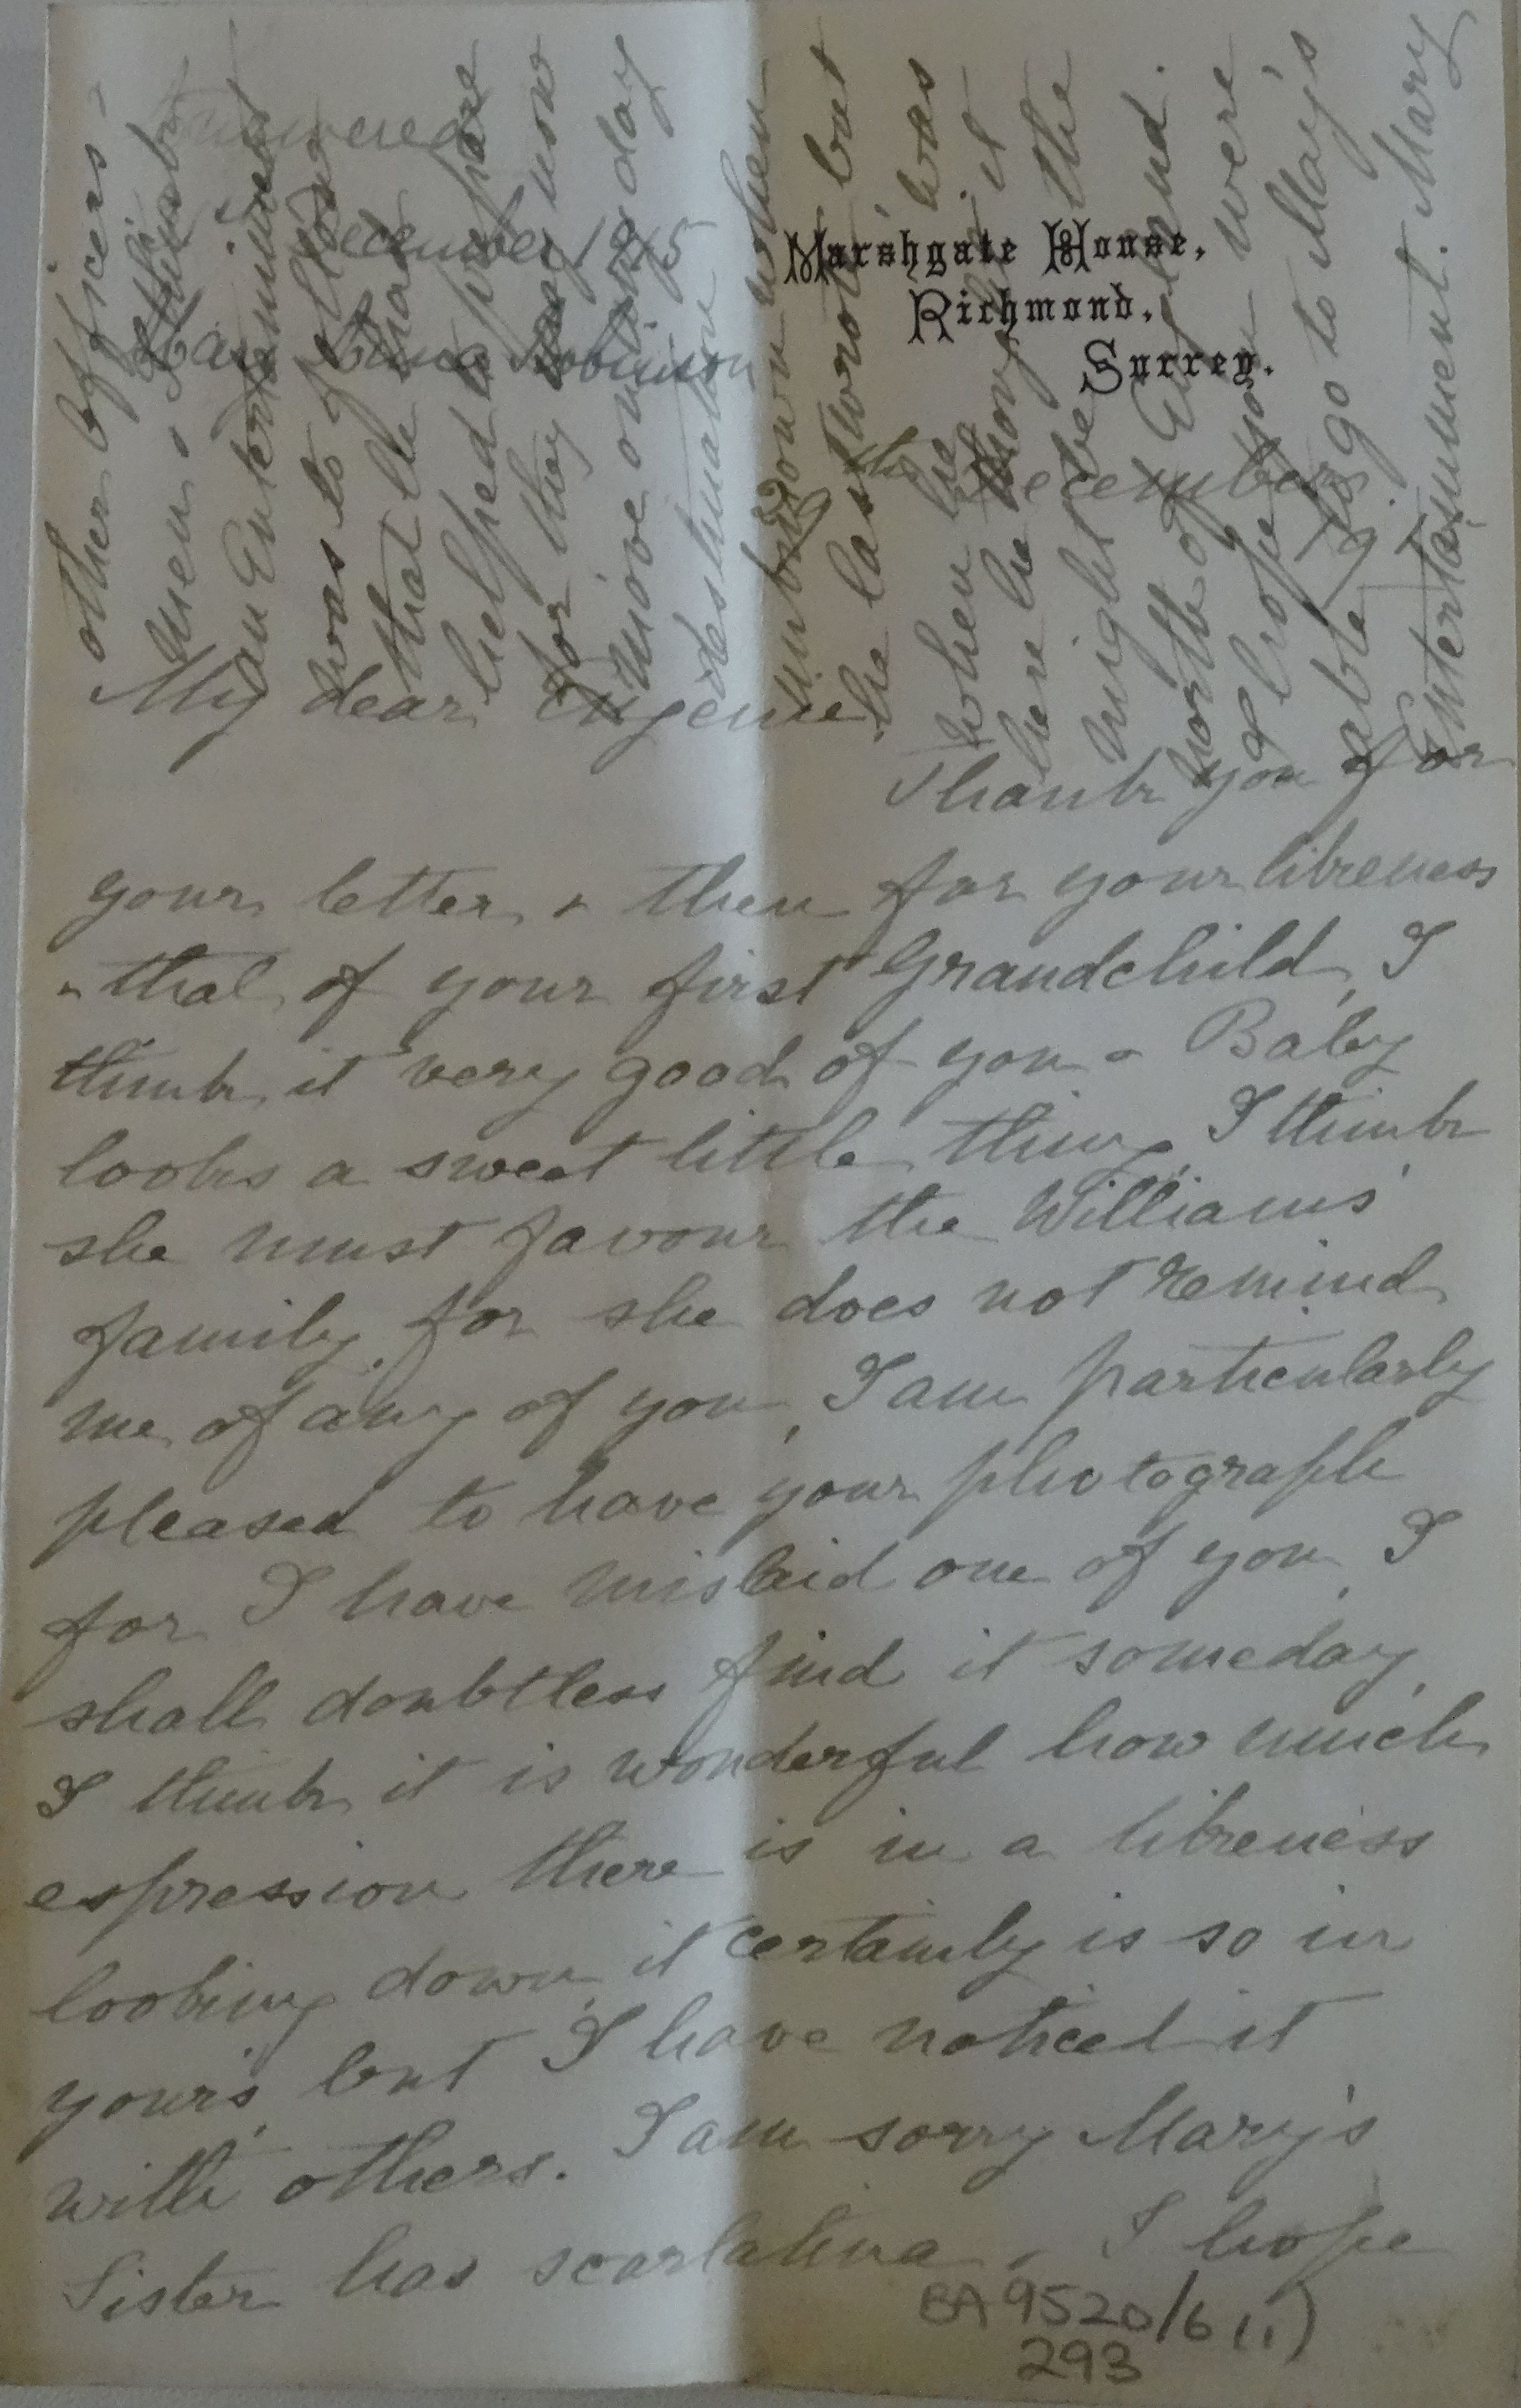 Answered
December 1915
Marshgate House,
Richmond,
Surrey.
9th December
My dear Eugenie
Thank you for
your letter, & then for your likeness
& that of your first Grandchild, I
think it very good of you - Baby
looks a sweet little thing, I think
she must favour the Williams'
family, for she does not remind
me of any of you, I am particularly
pleased to have your photograph
for I have mislaid one of you, I
shall doubtless find it someday,
I think it is wonderful how much
expression there is in a likeness
looking down, it certainly is so in
yours, but I have noticed it
with others. I am sorry Mary's
Sister has scarlatina, I hope
other officers -
men &
an Entertainment
was to follow
that he had
helped to prepare
for they may now
move on any day
destination
unknown when
he last wrote, but
when he was
here he thought it
might be the
North of England.
I hope you were
able to go to Mary's
Entertainment. Mary
BA 9520/6 (i)
293